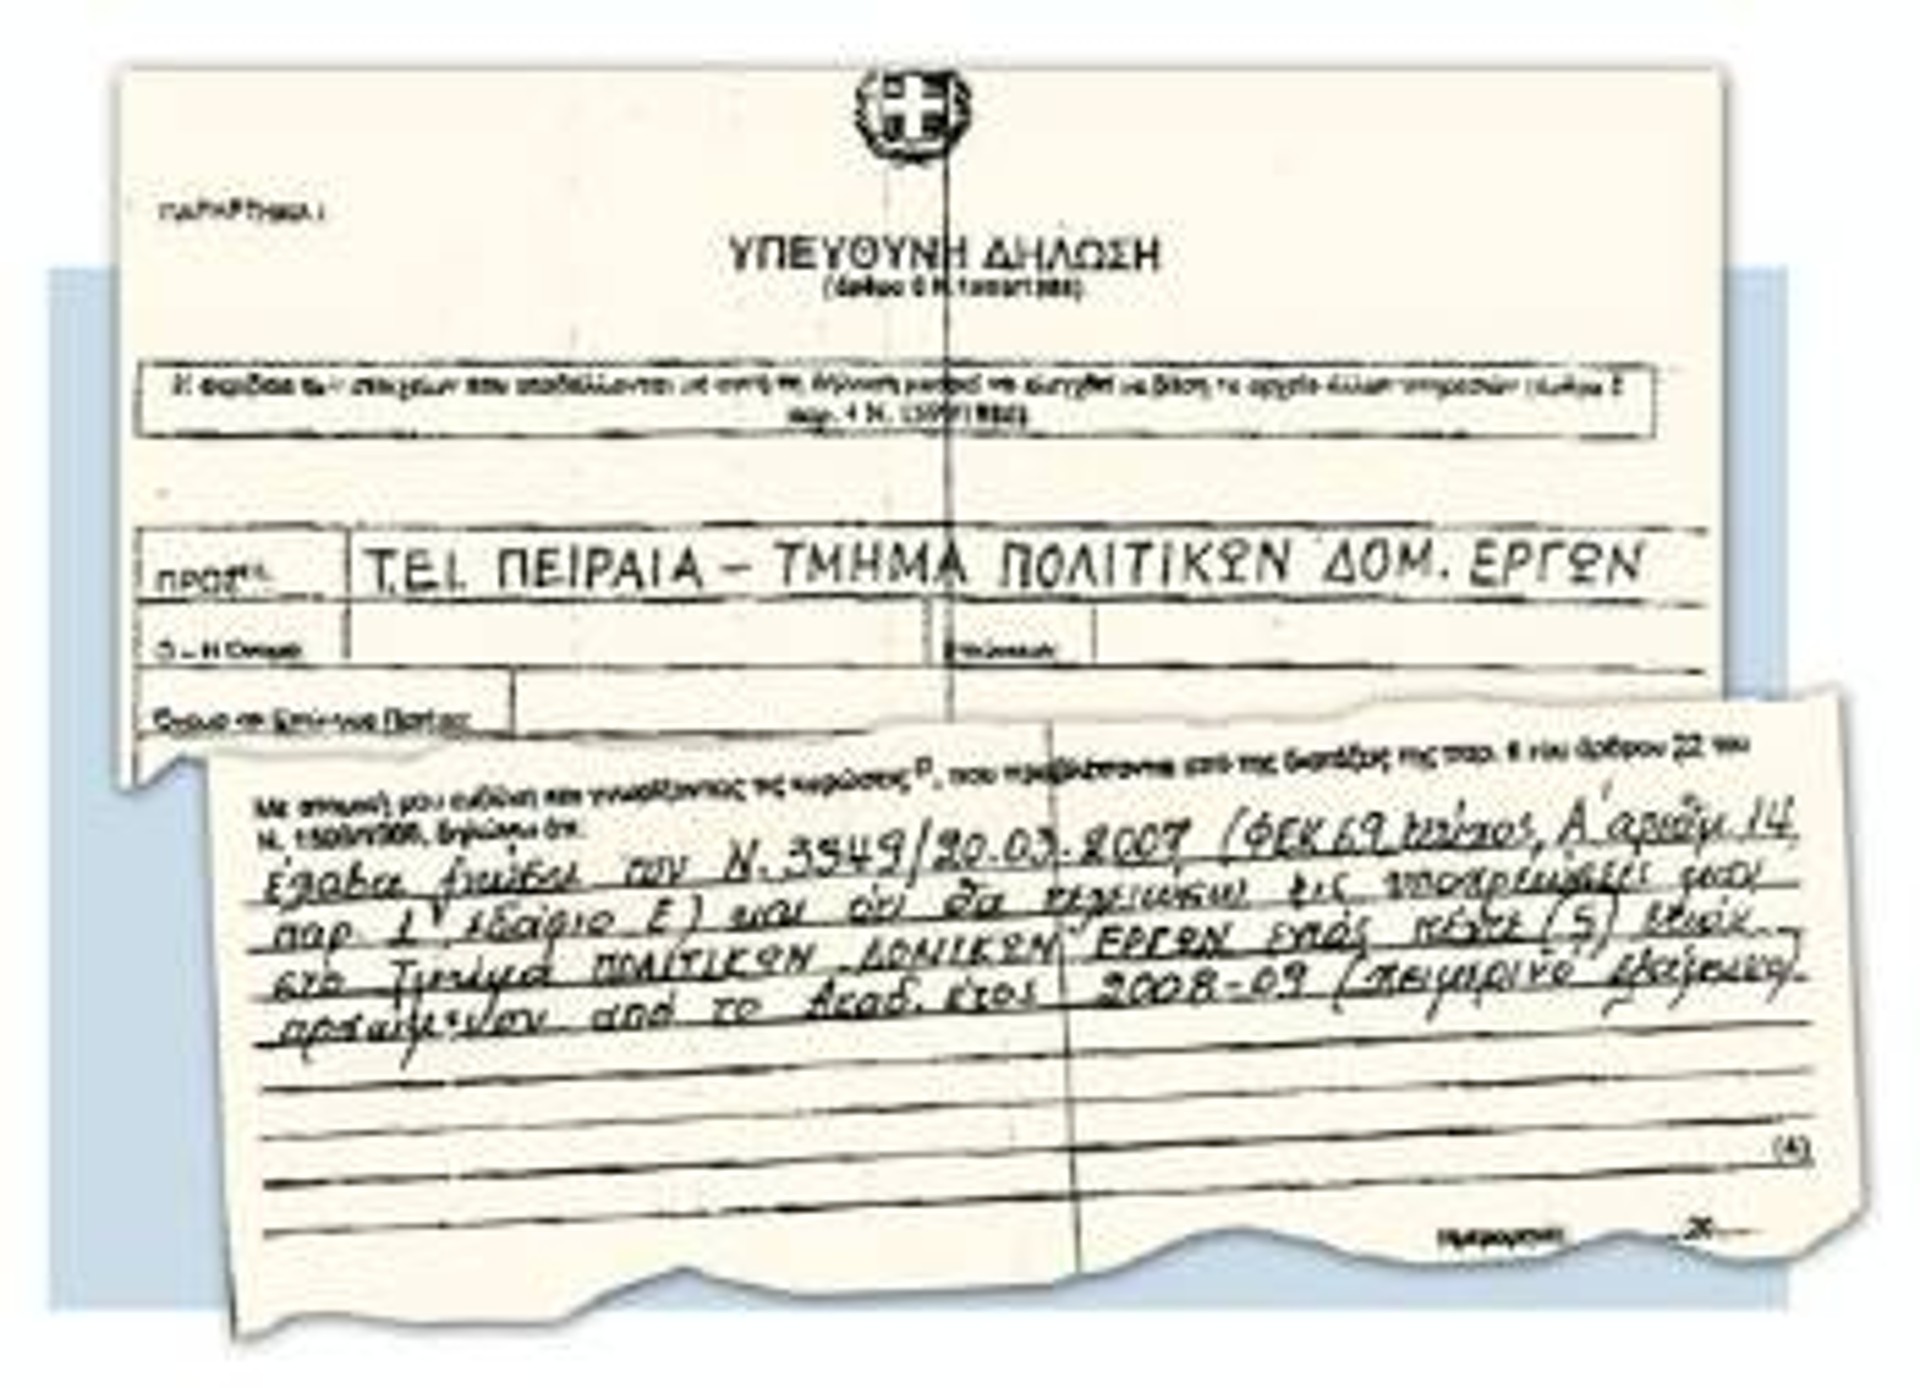 ΠΑΡΑΡΤΗΜΑ Ι
ΥΠΕΥΘΥΝΗ ΔΗΛΩΣΗ
(άρθρο 8 Ν.1599/1986)
Η ακρίβεια των στοιχείων που υποβάλλονται με αυτή τη δήλωση μπορεί να ελεγχθεί με βάση το αρχείο άλλων υπηρεσιών (άρθρο 8
παρ. 4 Ν. 1599/1986)
ΠΡΟΣ
Τ.Ε.Ι. ΠΕΙΡΑΙΑ – ΤΜΗΜΑ ΠΟΛΙΤΙΚΩΝ ΔΟΜ. ΕΡΓΩΝ
Ο – Η Όνομα:
Επώνυμο:
Όνομα και Επώνυμο Πατέρα:
Με ατομική μου ευθύνη και γνωρίζοντας τις κυρώσεις, που προβλέπονται από της διατάξεις της παρ. 6 του άρθρου 22 του
Ν. 1599/1986, δηλώνω ότι:
έλαβα γνώση του Ν. 3549/20.03.2007 (ΦΕΚ 69 τεύχος Α' αριθμ 14
παρ. 1 εδάφιο Ε) και ότι θα τις υποχρεώσεις μου
στο Τμήμα ΠΟΛΙΤΙΚΩΝ ΔΟΜΙΚΩΝ ΕΡΓΩΝ εντός πέντε (5) ετών
αρχομένου από το Ακαδ. έτος 2008-09 (χειμερινό εξάμηνο).
(4)
Ημερομηνία: 20